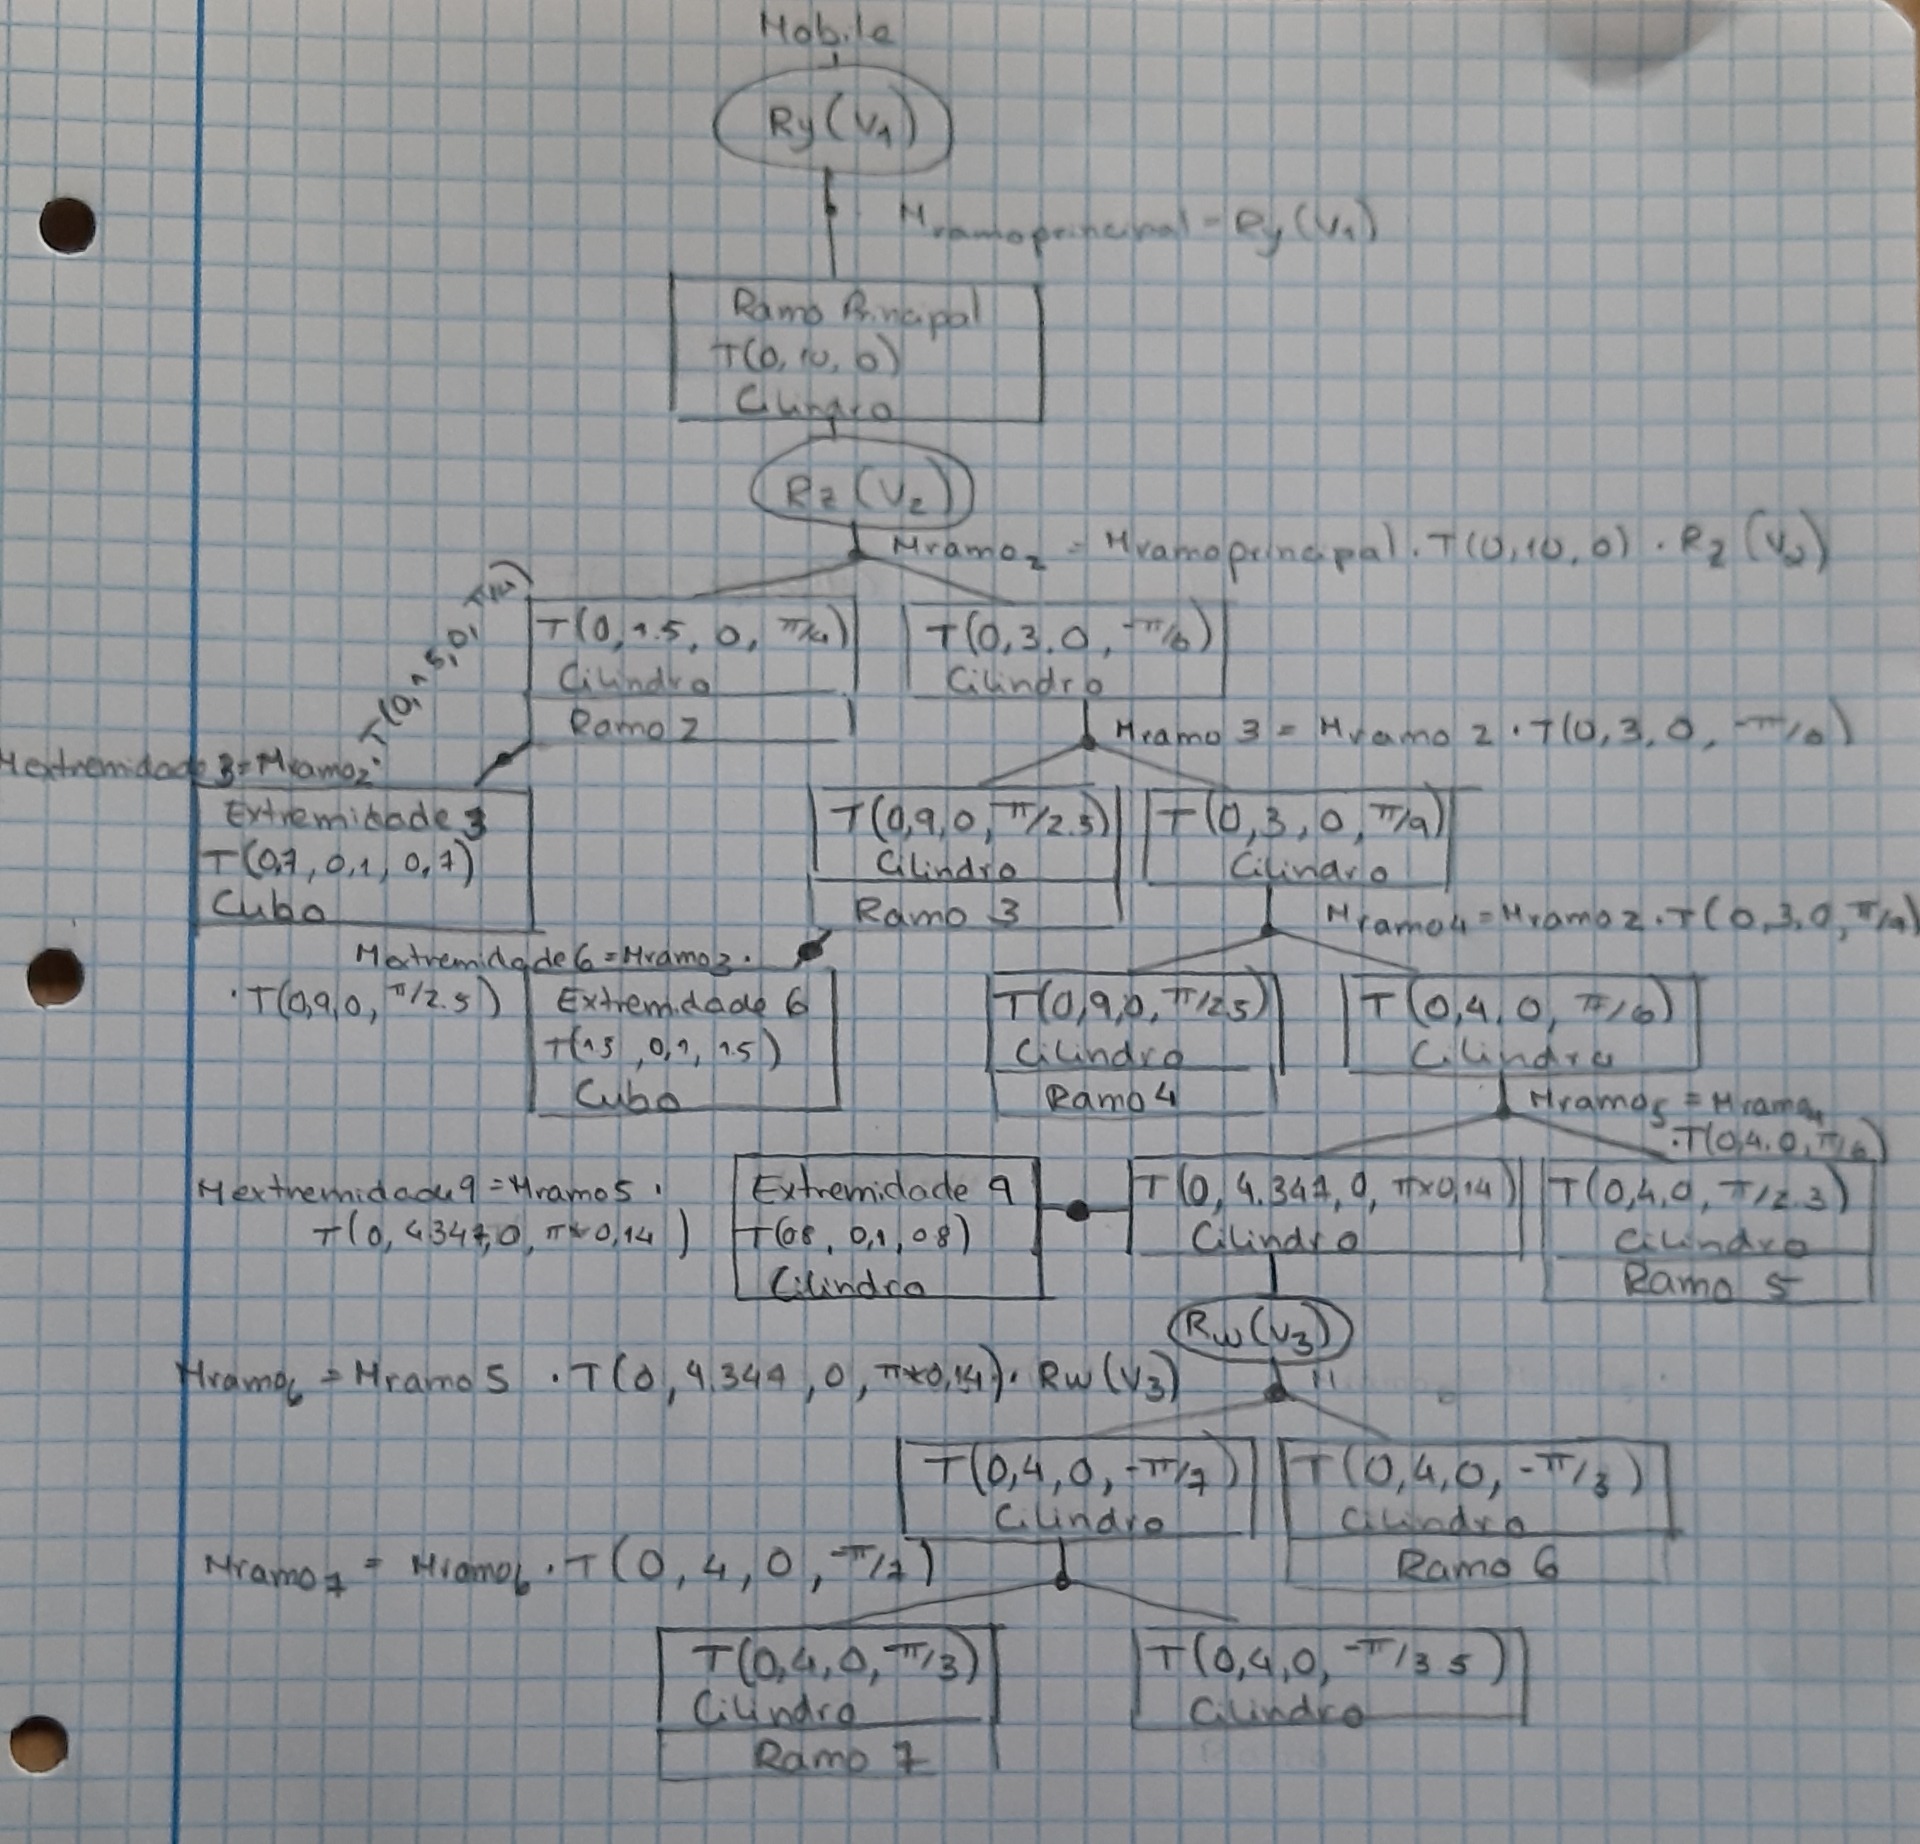 Mobile
Ry(V1)
Mramoprincipal = Ry(V1)
Ramo Principal
T(0, 10, 0)
Cilindro
Rz(V2)
Mramo2 = Mramoprincipal . T(0, 10, 0) . Rz (V2)
T(0, 1.5, 0, π/4)
Cilindro
Ramo 2
T(0, 3, 0, -π/6)
Cilindro
T(0, 1.5, 0, π/4)
Mextremidade 3 = Mramo2 .
Mramo 3 = Mramo 2 . T(0, 3, 0, -π/6)
Extremidade 3
T(0,7, 0,1, 0,7)
Cubo
T(0,9,0, π/2.5)
Cilindro
Ramo 3
T(0,3,0, π/9)
Cilindro
Mramo4 = Mramo2 . T(0,3,0, π/9)
Mextremidade 6 = Mramo3 .
. T(0,9,0, π/2.5)
Extremidade 6
T(1.5, 0,1, 1.5)
Cubo
T(0,9,0, π/2.5)
Cilindro
Ramo 4
T(0,4,0, π/6)
Cilindro
Mramo5 = Mramo4
.T(0,4,0, π/6)
Mextremidade 9 = Mramo5 .
T(0, 4.347, 0, π*0,14)
Extremidade 9
T(0.8, 0,1, 0.8)
Cilindro
T(0, 4.347, 0, π*0,14)
Cilindro
T(0,4,0, π/2.3)
Cilindro
Ramo 5
Rw(V3)
Mramo6 = Mramo5 . T(0, 4.347, 0, π*0,14) . Rw (V3)
T(0,4,0, -π/7)
Cilindro
T(0,4,0, -π/3)
Cilindro
Ramo 6
Mramo7 = Mramo6 . T(0, 4, 0, -π/7)
T(0,4,0, -π/3)
Cilindro
Ramo 7
T(0,4,0, -π/3.5)
Cilindro